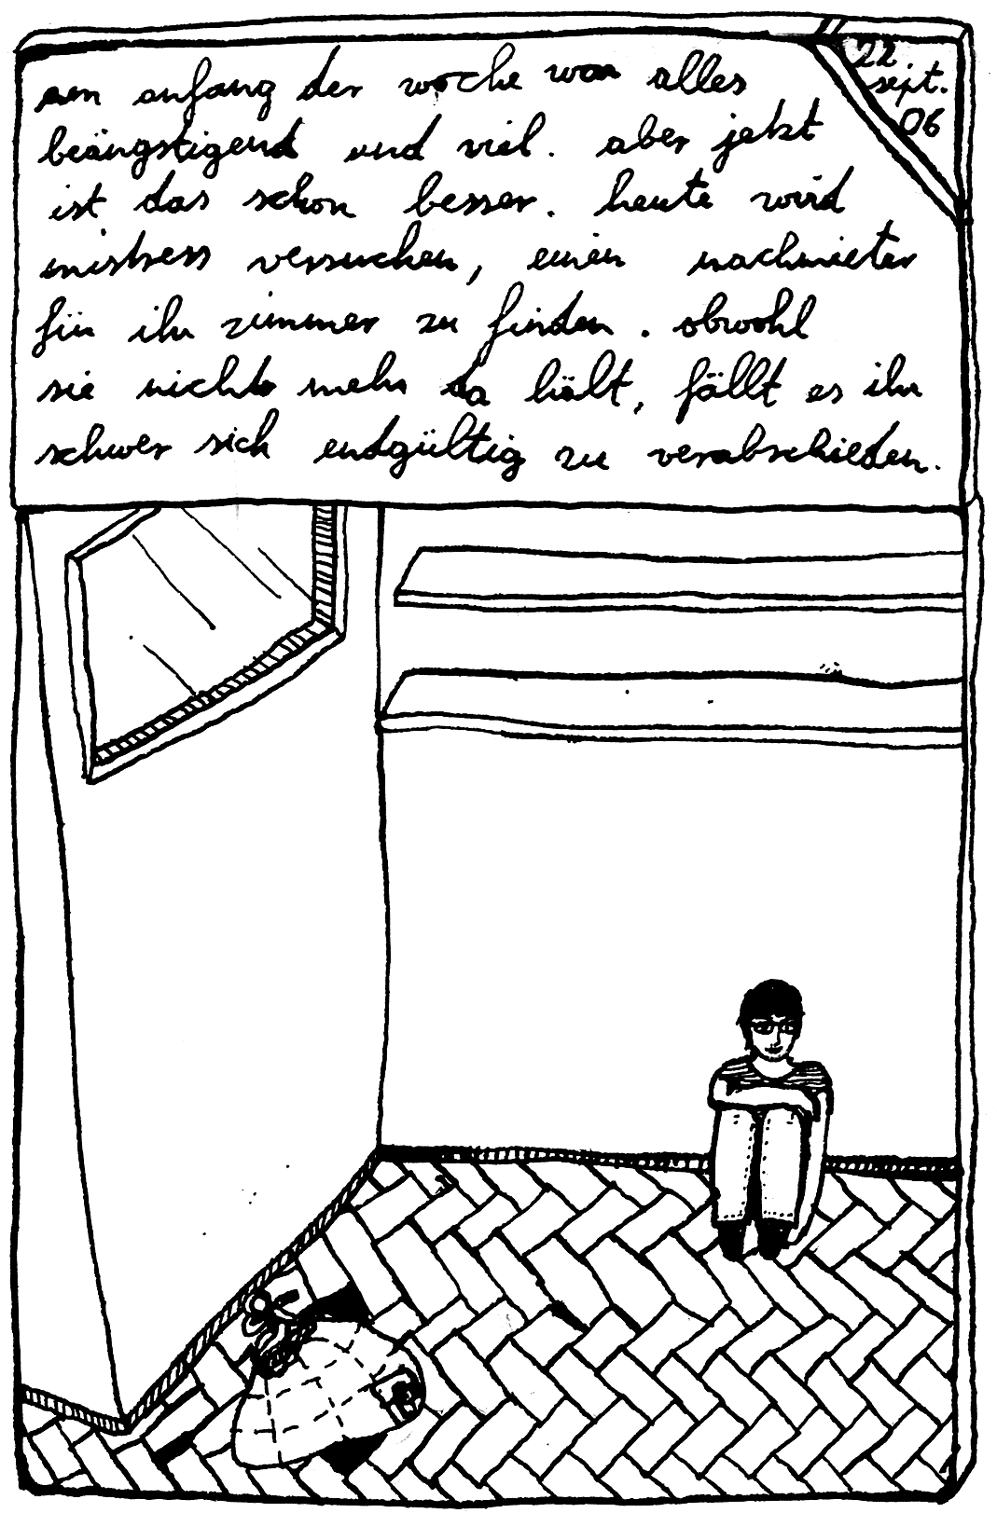 am anfang der woche war alles
beängstigend und viel. aber jetzt
ist das schon besser. heute wird
mistress versuchen, einen nachmieter
für ihr zimmer zu finden. obwohl
sie nichts mehr da hält, fällt es ihr
schwer sich endgültig zu verabschieden.
22
sept.
06